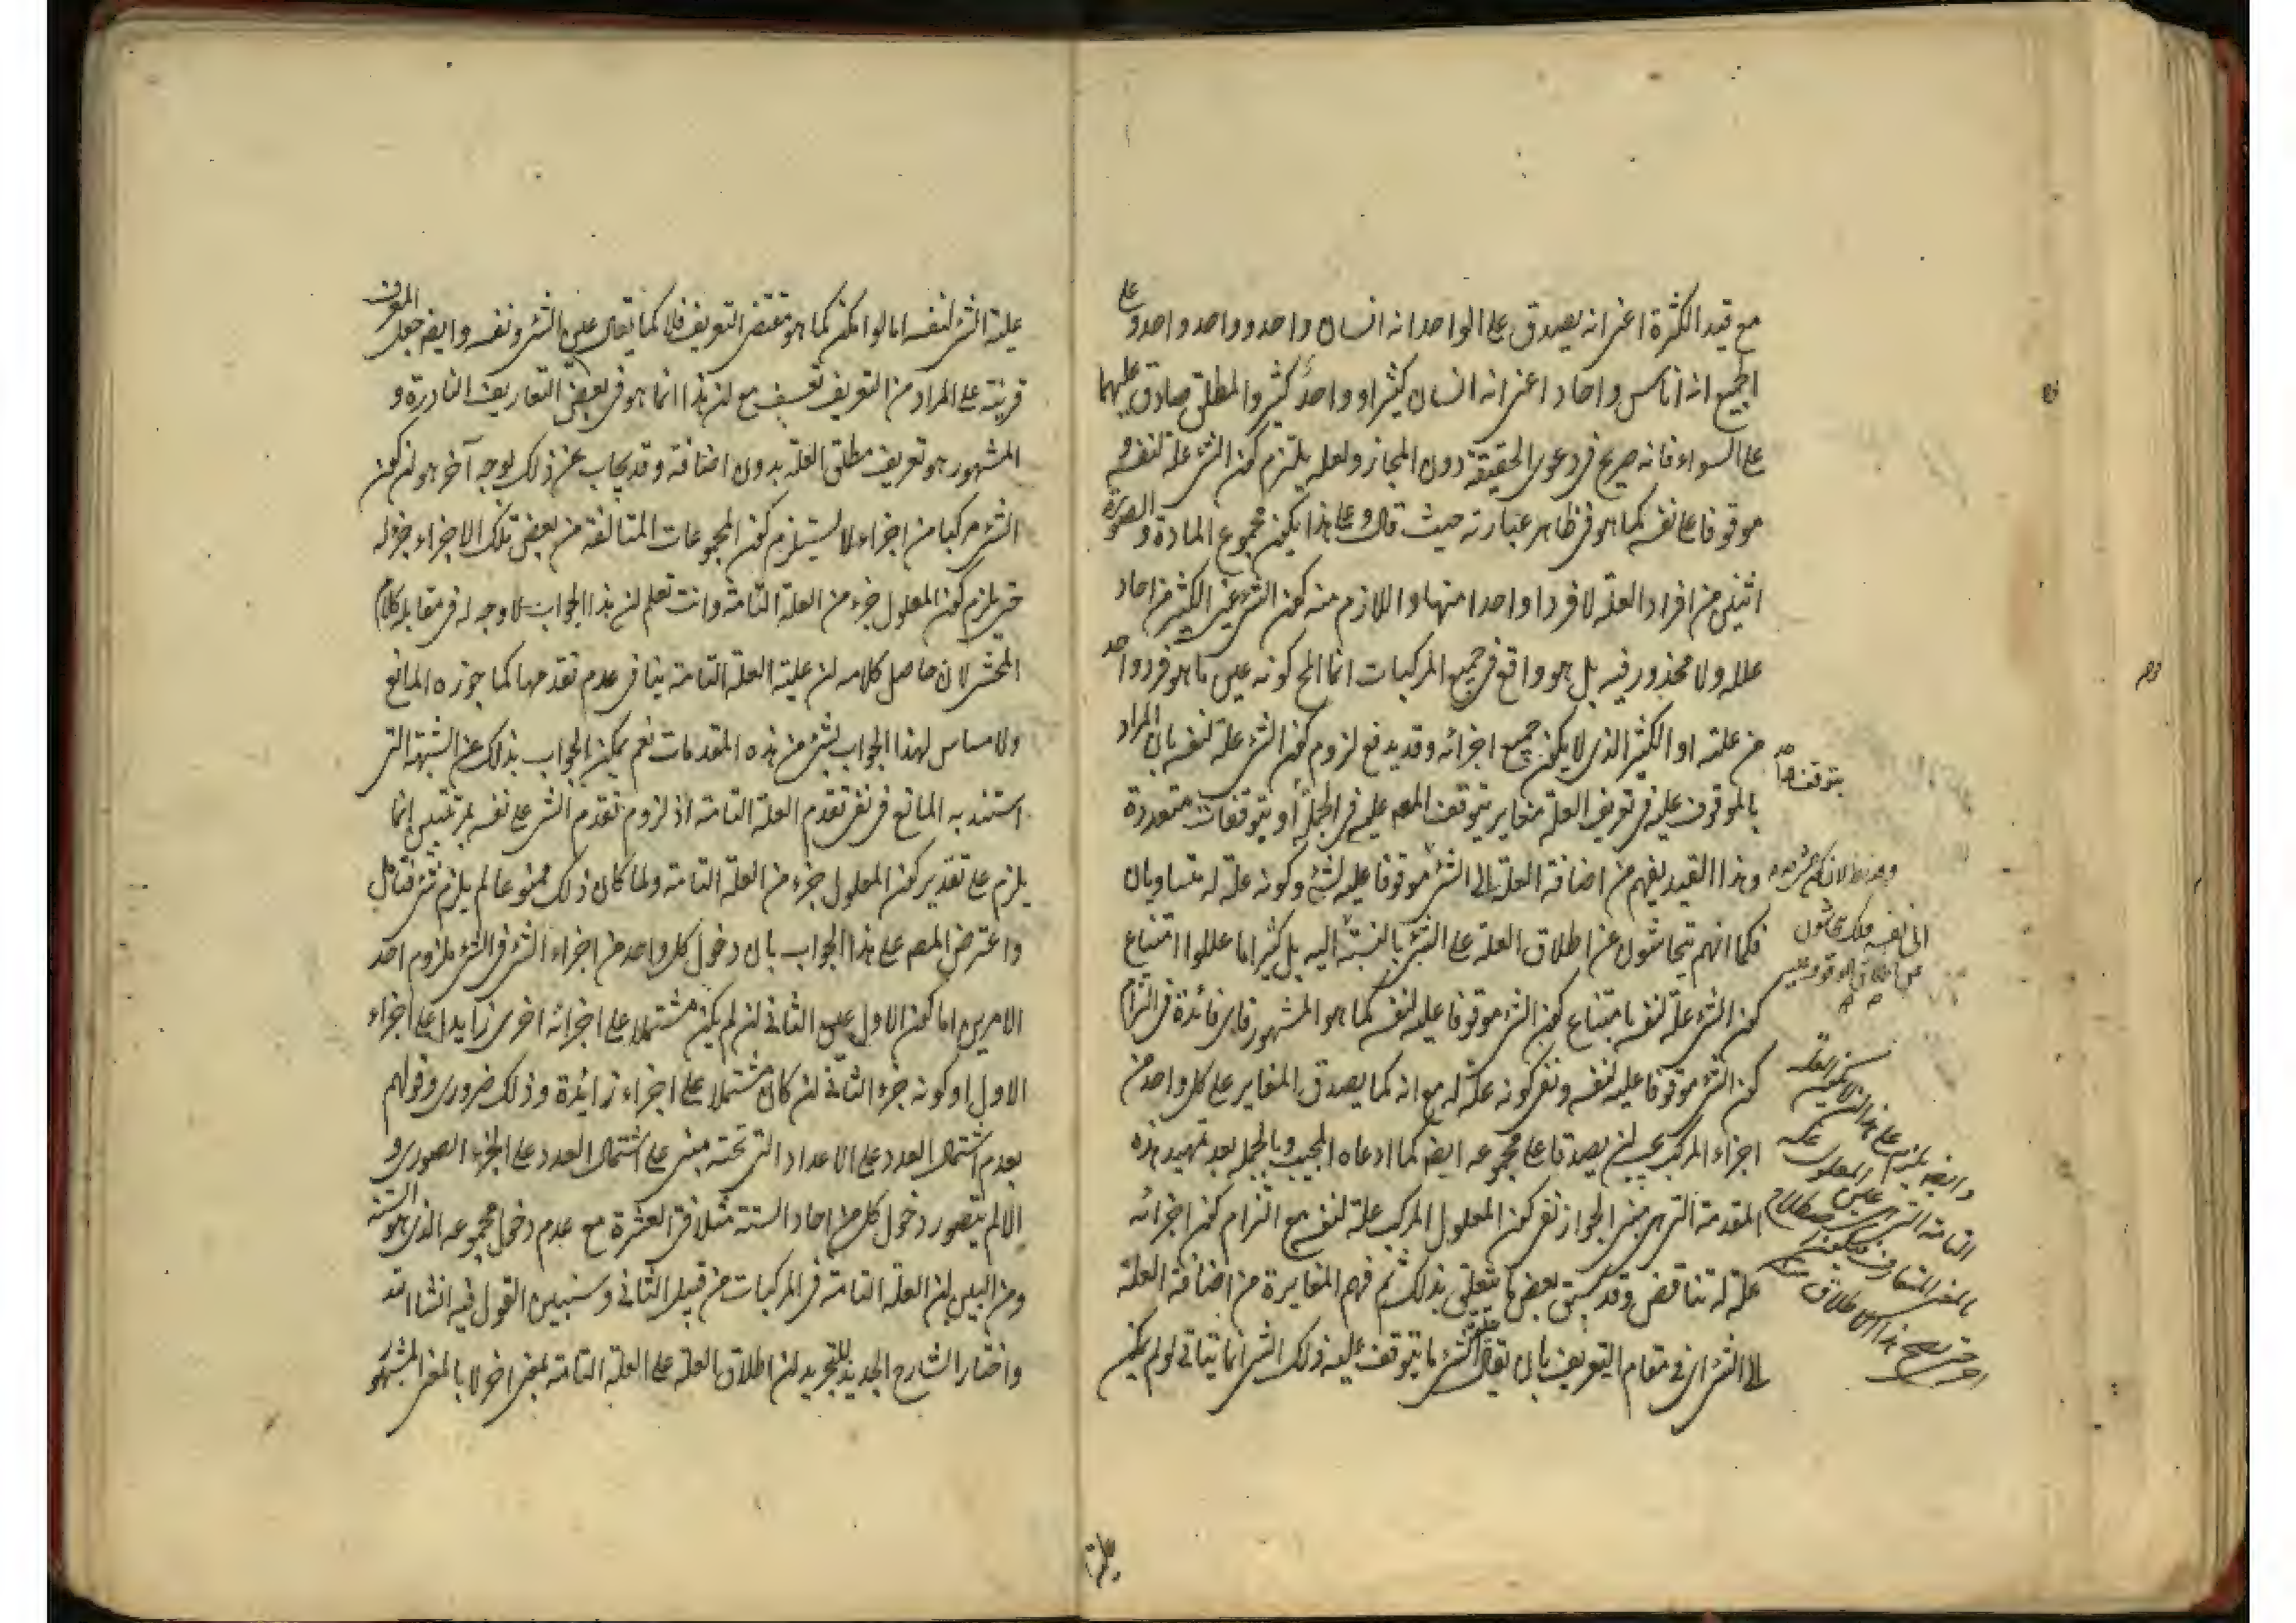 مع قيد الكثرة اعنى انه يصدق على الواحد انه انسان واحد وواحد واحد وعلى
الجميع انه اناس واحاد اعنى انه انسان كثير او واحد كثير والمطلق صادق عليهما
على السواء فانه صريح فى دعوى الحقيقة دون المجاز ولعله يلتزم كون الشئ علة لنفسه
موقوفا على نفسه كما هو فى ظاهر عبارته حيث قال وعلى هذا يكون مجموع المادة والصورة
اثنين من افراد العلة لا فردا واحدا منها واللازم منه كون الشئ عين الكثير من احاد
علله ولا محذور فيه بل هو واقع فى جميع المركبات انما المح كونه عين ما هو فرد واحد
من علته او الكثير الذى لا يكون جميع اجزائه وقد يدفع لزوم كون الشئ علة لنفسه بان المراد
بالموقوف عليه فى تعريف العلة مغاير يتوقف المعه عليه فى الجملة او بتوقفات متعددة
وهذا القيد يفهم من اضافة العلة الى الشئ موقوفا عليه لشئ وكونه علة له متساويان
فكما انهم يتحاشون عن اطلاق العلة على الشئ بالنسبة اليه بل كثيرا ما عللوا امتناع
كون الشئ علة لنفسه بامتناع كون الشئ موقوفا عليه لنفسه كما هو المشهور فاى فائدة فى التزام
كون الشئ موقوفا عليه لنفسه ونفى كونه علة له مع انه كما يصدق المغاير على كل واحد من
اجزاء المركب يجب ان يصدقا على مجموعه ايضا كما ادعاه المجيب وبالجملة بعد تمهيد هذه
المقدمة التى هى مبنى الجواز نفى كون المعلول المركب علة لنفسه مع التزام كون اجزائه
علة له تناقض وقد سبق بعض ما يتعلق بذلك ثم فهم المغايرة من اضافة العلة
الى الشئ اى فى مقام التعريف بان يقال علة الشئ ما يتوقف عليه ذلك الشئ انما يتأتى لو لم يكن
بتوقف واحد
الى نفسه فلك يتحاشون
عن اطلاق الموقوف عليه
علية
علية الشئ لنفسه اما لو امكن كما هو مقتضى التعريف فلا كما يقال عين الشئ ونفسه وايضا جعل المعرف
قرينة على المراد من التعريف تعسف مع ان هذا انما هو فى بعض التعاريف النادرة و
المشهور هو تعريف مطلق العلة بدون اضافة وقد يجاب عن ذلك بوجه آخر هو ان كون
الشئ مركبا من اجزاء لا يستلزم كون المجموعات المتالفة من بعض تلك الاجزاء جزء له
حتى يلزم كون المعلول جزء من العلة التامة وانت تعلم ان هذا الجواب لا وجه له فى مقابلة كلام
المحشى لان حاصل كلامه ان علية العلة التامة ينافى عدم تقدمها كما جوزه المانع
ولا مساس لهذا الجواب بشئ من هذه المقدمات نعم يمكن الجواب بذلك عن الشبهة التى
استند به المانع فى نفى تقدم العلة التامة اذ لزوم تقدم الشئ على نفسه بمرتبتين انما
يلزم على تقدير كون المعلول جزء من العلة التامة ولما كان ذلك ممنوعا لم يلزم شئ فتامل
واعترض المصه على هذا الجواب بان دخول كل واحد من اجزاء الشئ فى الشئ ملزوم احد
الامرين اما كون الاول عين الثانى ان لم يكن مشتملا على اجزائه اخرى زايدا على اجزاء
الاول او كونه جزء الثانى ان كان مشتملا على اجزاء زائدة وذلك ضرورى وقولهم
بعدم اشتمال العدد على الاعداد التى تحته مبنى على اشتمال العدد على الجزء الصورى و
الا لم يتصور دخول كل من احاد الستة مثلا فى العشرة مع عدم دخول مجموعه الذى هو الستة
ومن البين ان العلة التامة فى المركبات من قبيل الثانى وسنبين القول فيه انشا الله
واختار الشارح الجديد للتجريد ان اطلاق العلة على العلة التامة بمعنى اخر لا بالمعنى المشهور